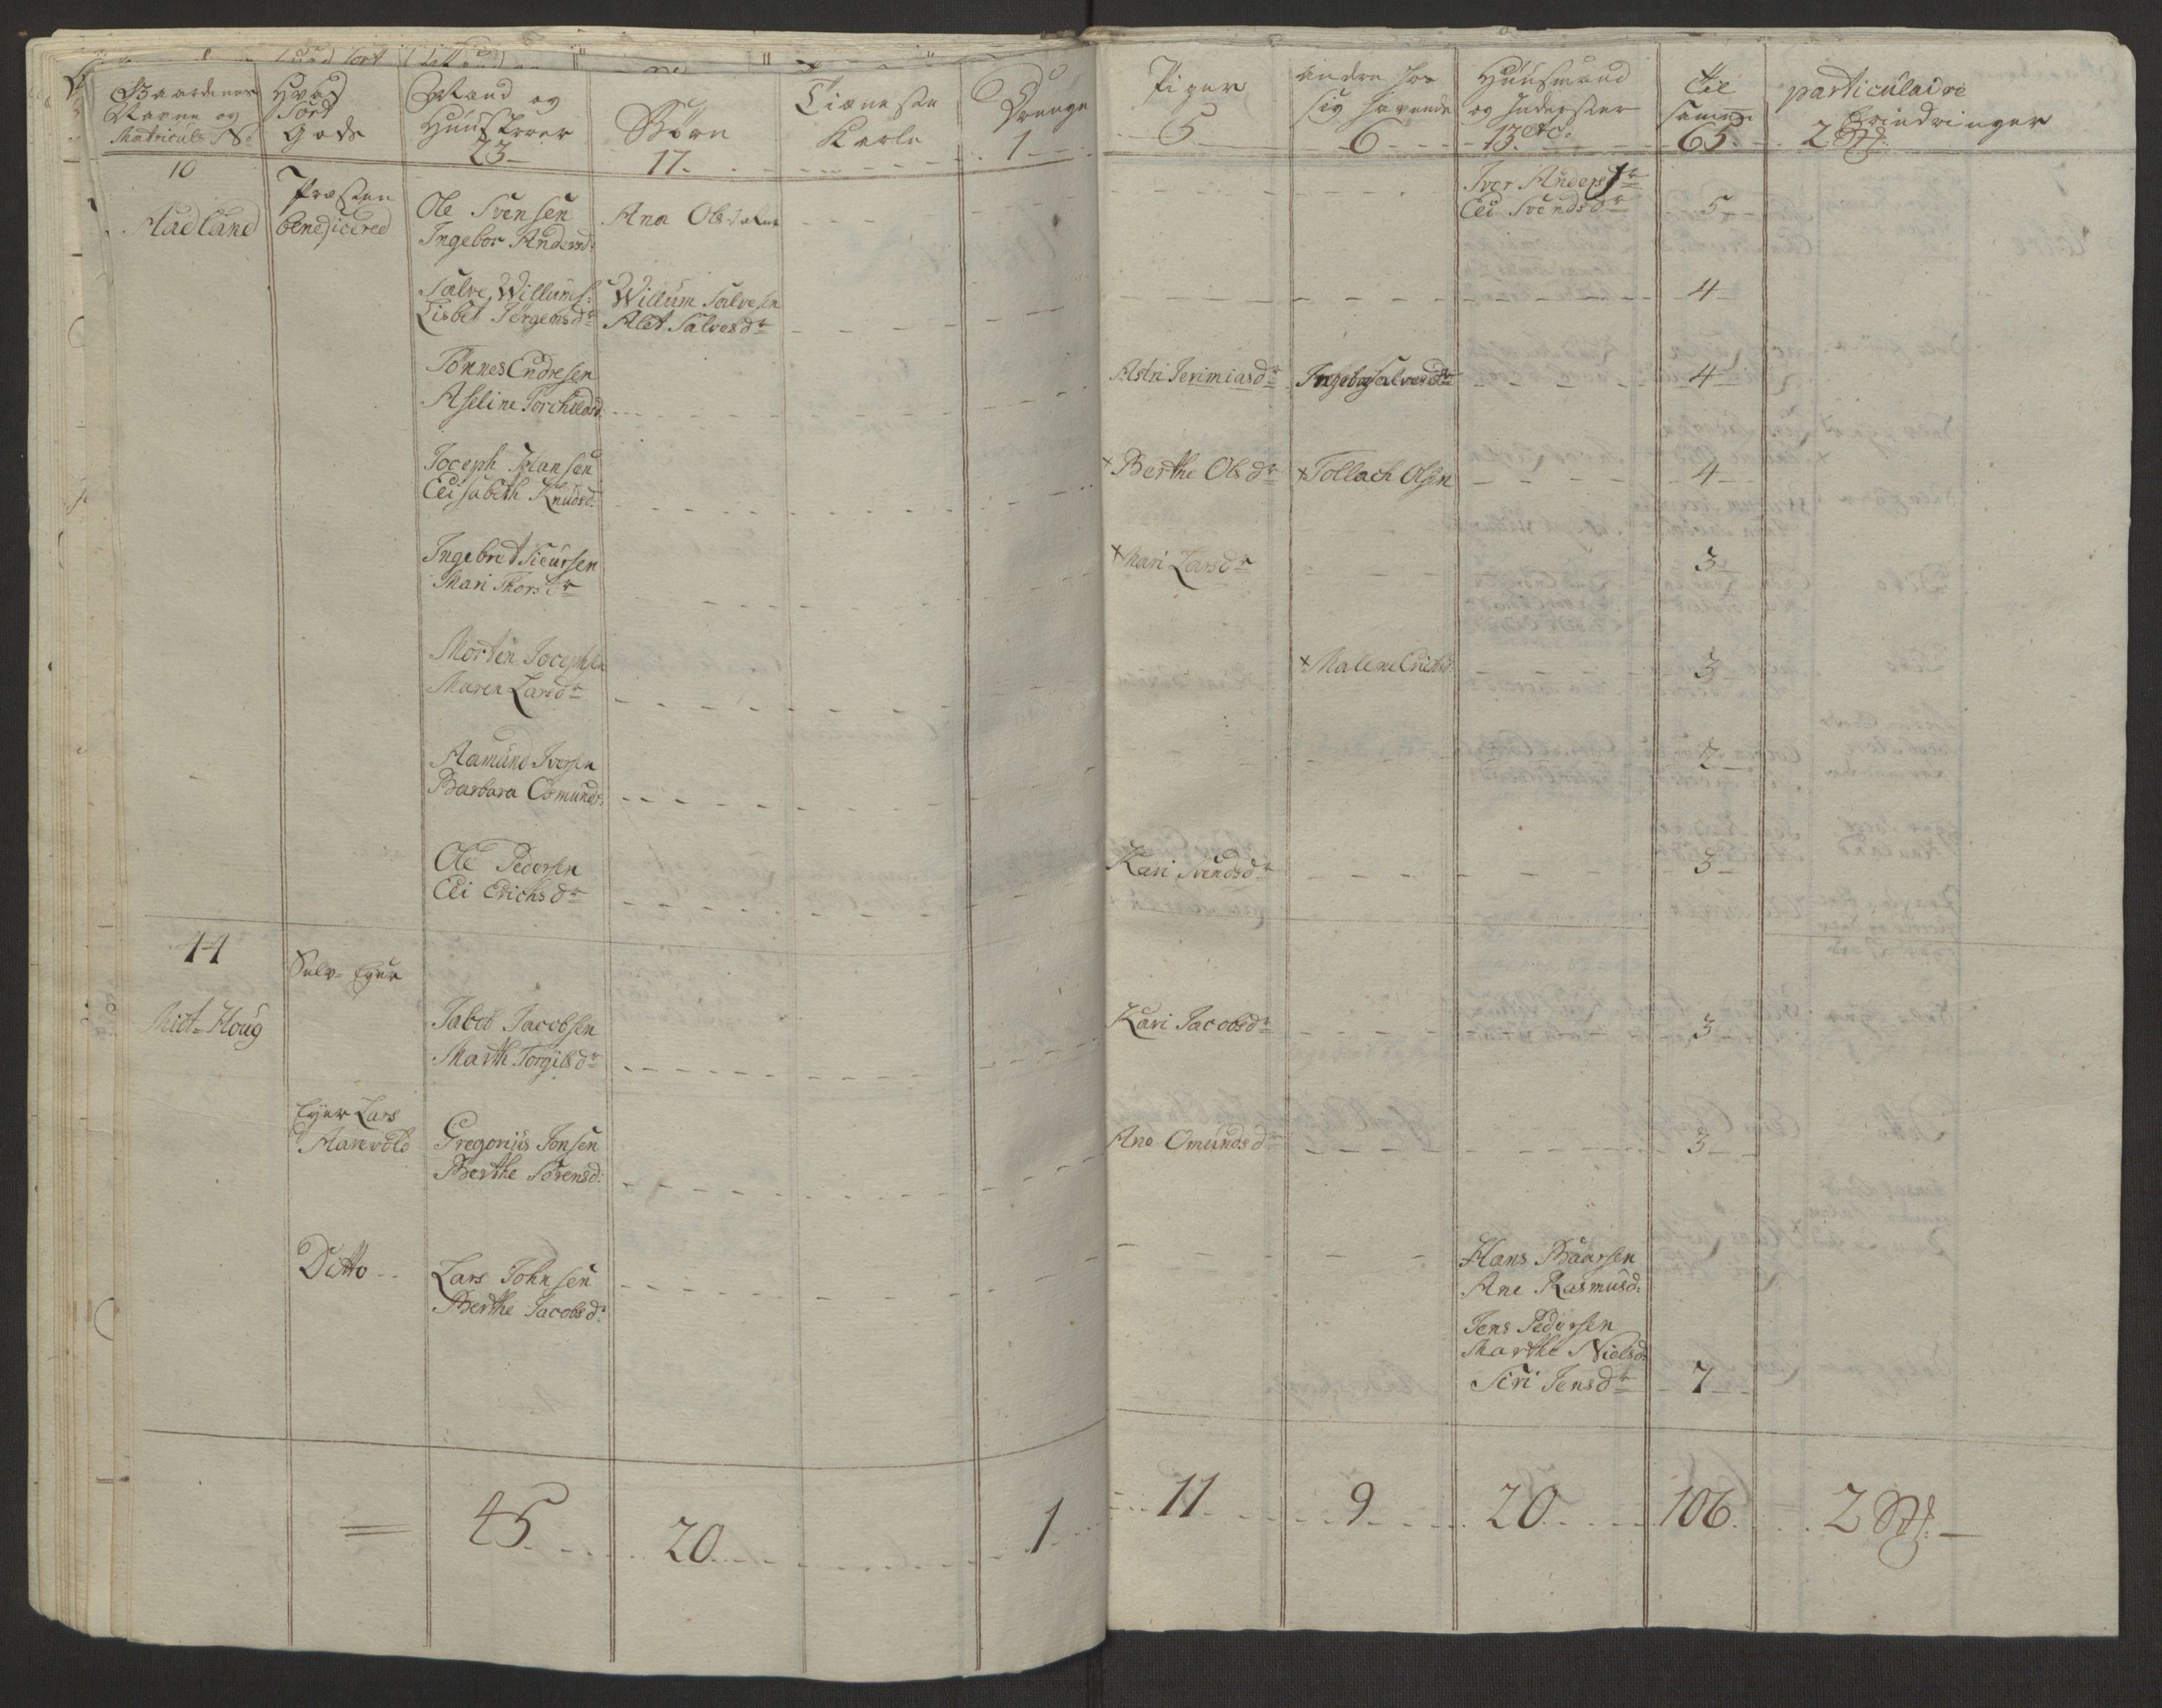 Gaardenes
Navne og
Matriculs No
Hvad
Sort
Gods
Mand og
Huustroer
23
Børn
17
Tieneste
Karle
Drenge
1
Piger
5
andre hos
sig havende
6
Huusmænd
og Inderster
13 etc.
til
samen
65
particulaire
Erindringer
2
10
Præsten
beneficered
Aadland
Ole Svensen
Ingebor Andersd:
Ana Olsdatter
Iver Anders
Eli Svendsdr
5
Salve Willums:
Lisbet Jörgensdr
Willum Salvesen
Alet Salvesdr
4
Tönnes Endresen
Aseline Torchildsd:
Astri Jerimiasdr
Ingebor Salvesdr
4
Joceph Hansen
Elisabeth Knudsd:
+ Berthe Olsdr
+ Tollach Olsen
4
Ingebret Sieursen
Mari Thorsdr
+ Mari Larsdr
3
Morten Jocephsen
Maren Larsdr
+ Malene Erichsd:
3
Aamund Iversen
Barbara Omunds:
2
Ole Pedersen
Eli Erichsdr
Kari Svendsdr
3
44
Selv-Eyer
Mid-Houg
Jacob Jacobsen
Marth Torgilsdr
Kari Jacobsdr
3
Eyer Lars
Aarevold
Gregorius Jonsen
Berthe Sörensd:
Ane Omundsdr
3
Ditto
Lars Johnsen
Berthe Jacobsd:
Hans Baarsen
Ane Rasmusd:
Jens Pedersen
Marthe Nielsd:
Siri Jensdr
7
45
20
1
11
9
20
106
2